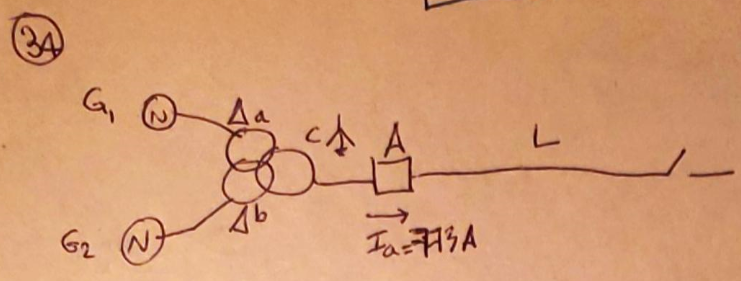 34
G₁ N Δa
C A L
G₂ N Δb
Ia=713A